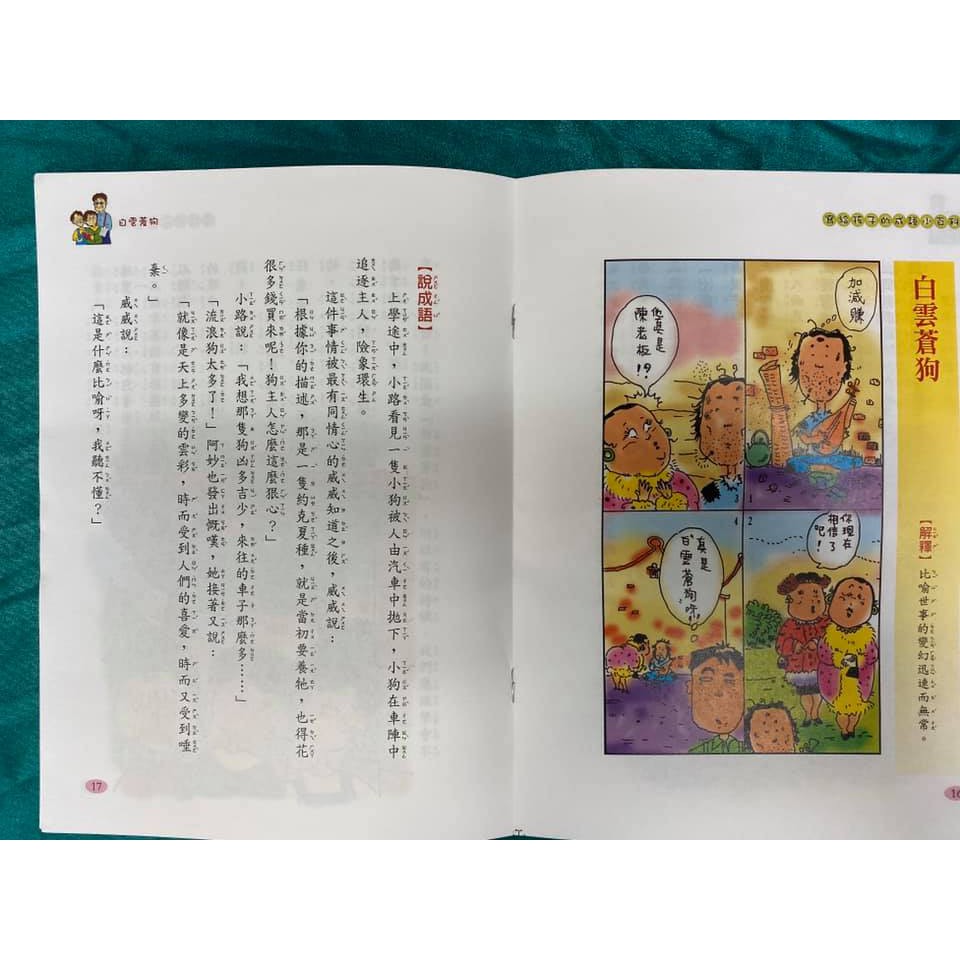 寫給孩子的成語小百科
白雲蒼狗
【解釋】比喻世事的變幻迅速而無常。
加減賺
1
你現在
相信了
吧！
2
他真是
陳老板
!?
3
真是
白雲蒼狗咻!!
4
16
白雲蒼狗
【說成語】
上學途中，小路看見一隻小狗被人由汽車中拋下，小狗在車陣中
追逐主人，險象環生。
這件事情被最有同情心的威威知道之後，威威說：
「根據你的描述，那是一隻約克夏種，就是當初要養牠，也得花
很多錢買來呢！狗主人怎麼這麼狠心？」
小路說：「我想那隻狗凶多吉少，來往的車子那麼多……」
「流浪狗太多了！」阿妙也發出慨嘆，她接著又說：
「就像是天上多變的雲彩，時而受到人們的喜愛，時而又受到唾
棄。」
威威說：
「這是什麼比喻呀，我聽不懂？」
17